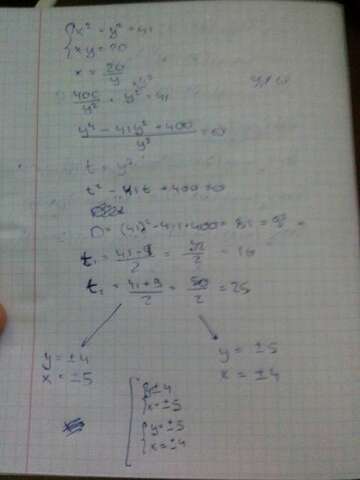 x² + y² = 41
xy = 20
x = 20/y
y ≠ 0
400/y² + y² = 41
(y⁴ - 41y² + 400)/y² = 0
t = y²
t² - 41t + 400 = 0
D = (41)² - 4·1·400 = 81 = 9²
t₁ = (41-9)/2 = 32/2 = 16
t₂ = (41+9)/2 = 50/2 = 25
y = ±4
x = ±5
y = ±5
x = ±4
y ± 4
x = ±5
y = ±5
x = ±4